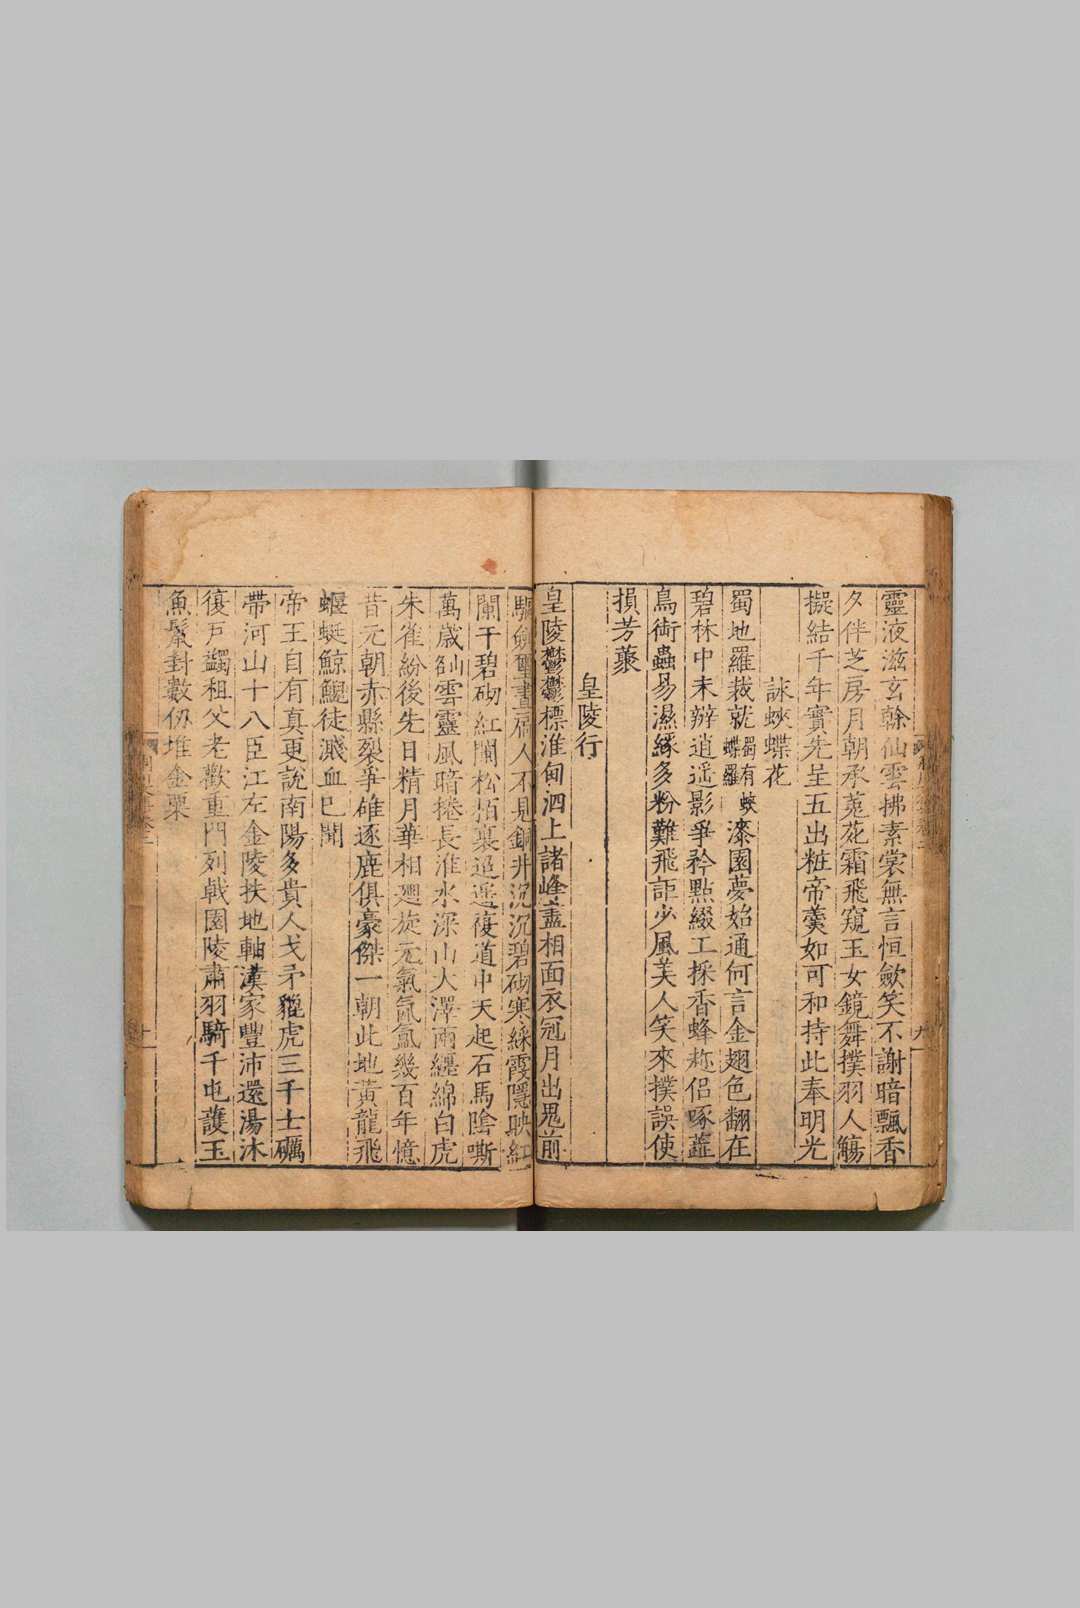 靈液滋玄榦仙雲拂素裳無言恒歛笑不謝暗飄香
夕伴芝房月朝承菀花霜飛窺玉女鏡舞撲羽人觴
擬結千年實先呈五出粧帝羹如可和持此奉明光
詠蛺蝶花
蜀地羅裁就蜀有蛺蝶羅漆園夢始通何言金翅色翻在
碧林中未辨逍遥影爭矜點綴工採香蜂趂侣啄蘂
鳥銜蟲易濕緣多粉難飛詎少風美人笑來撲誤使
損芳藂
皇陵行
皇陵鬱鬱標淮甸泗上諸峰盡相面衣冠月出鬼前
驅劍璽晝扃人不見銅井沉沉碧砌寒綵霞隱映紅
闌干碧砌紅闌松栢裏逍遥復道中天起石馬陰嘶
萬歲雲靈風暗捲長淮水深山大澤雨纏綿白虎
朱雀紛後先日精月華相廻旋元氣氤氳幾百年憶
昔元朝赤縣裂爭雄逐鹿俱豪傑一朝此地黃龍飛
蝘蜓鯨鯢徒濺血已聞
帝王自有真更說南陽多貴人戈矛貔虎三千士礪
帶河山十八臣江左金陵扶地軸漢家豐沛還湯沐
復戶蠲租父老歡重門列戟園陵肅羽騎千屯護玉
魚鬣封數仞堆金粟